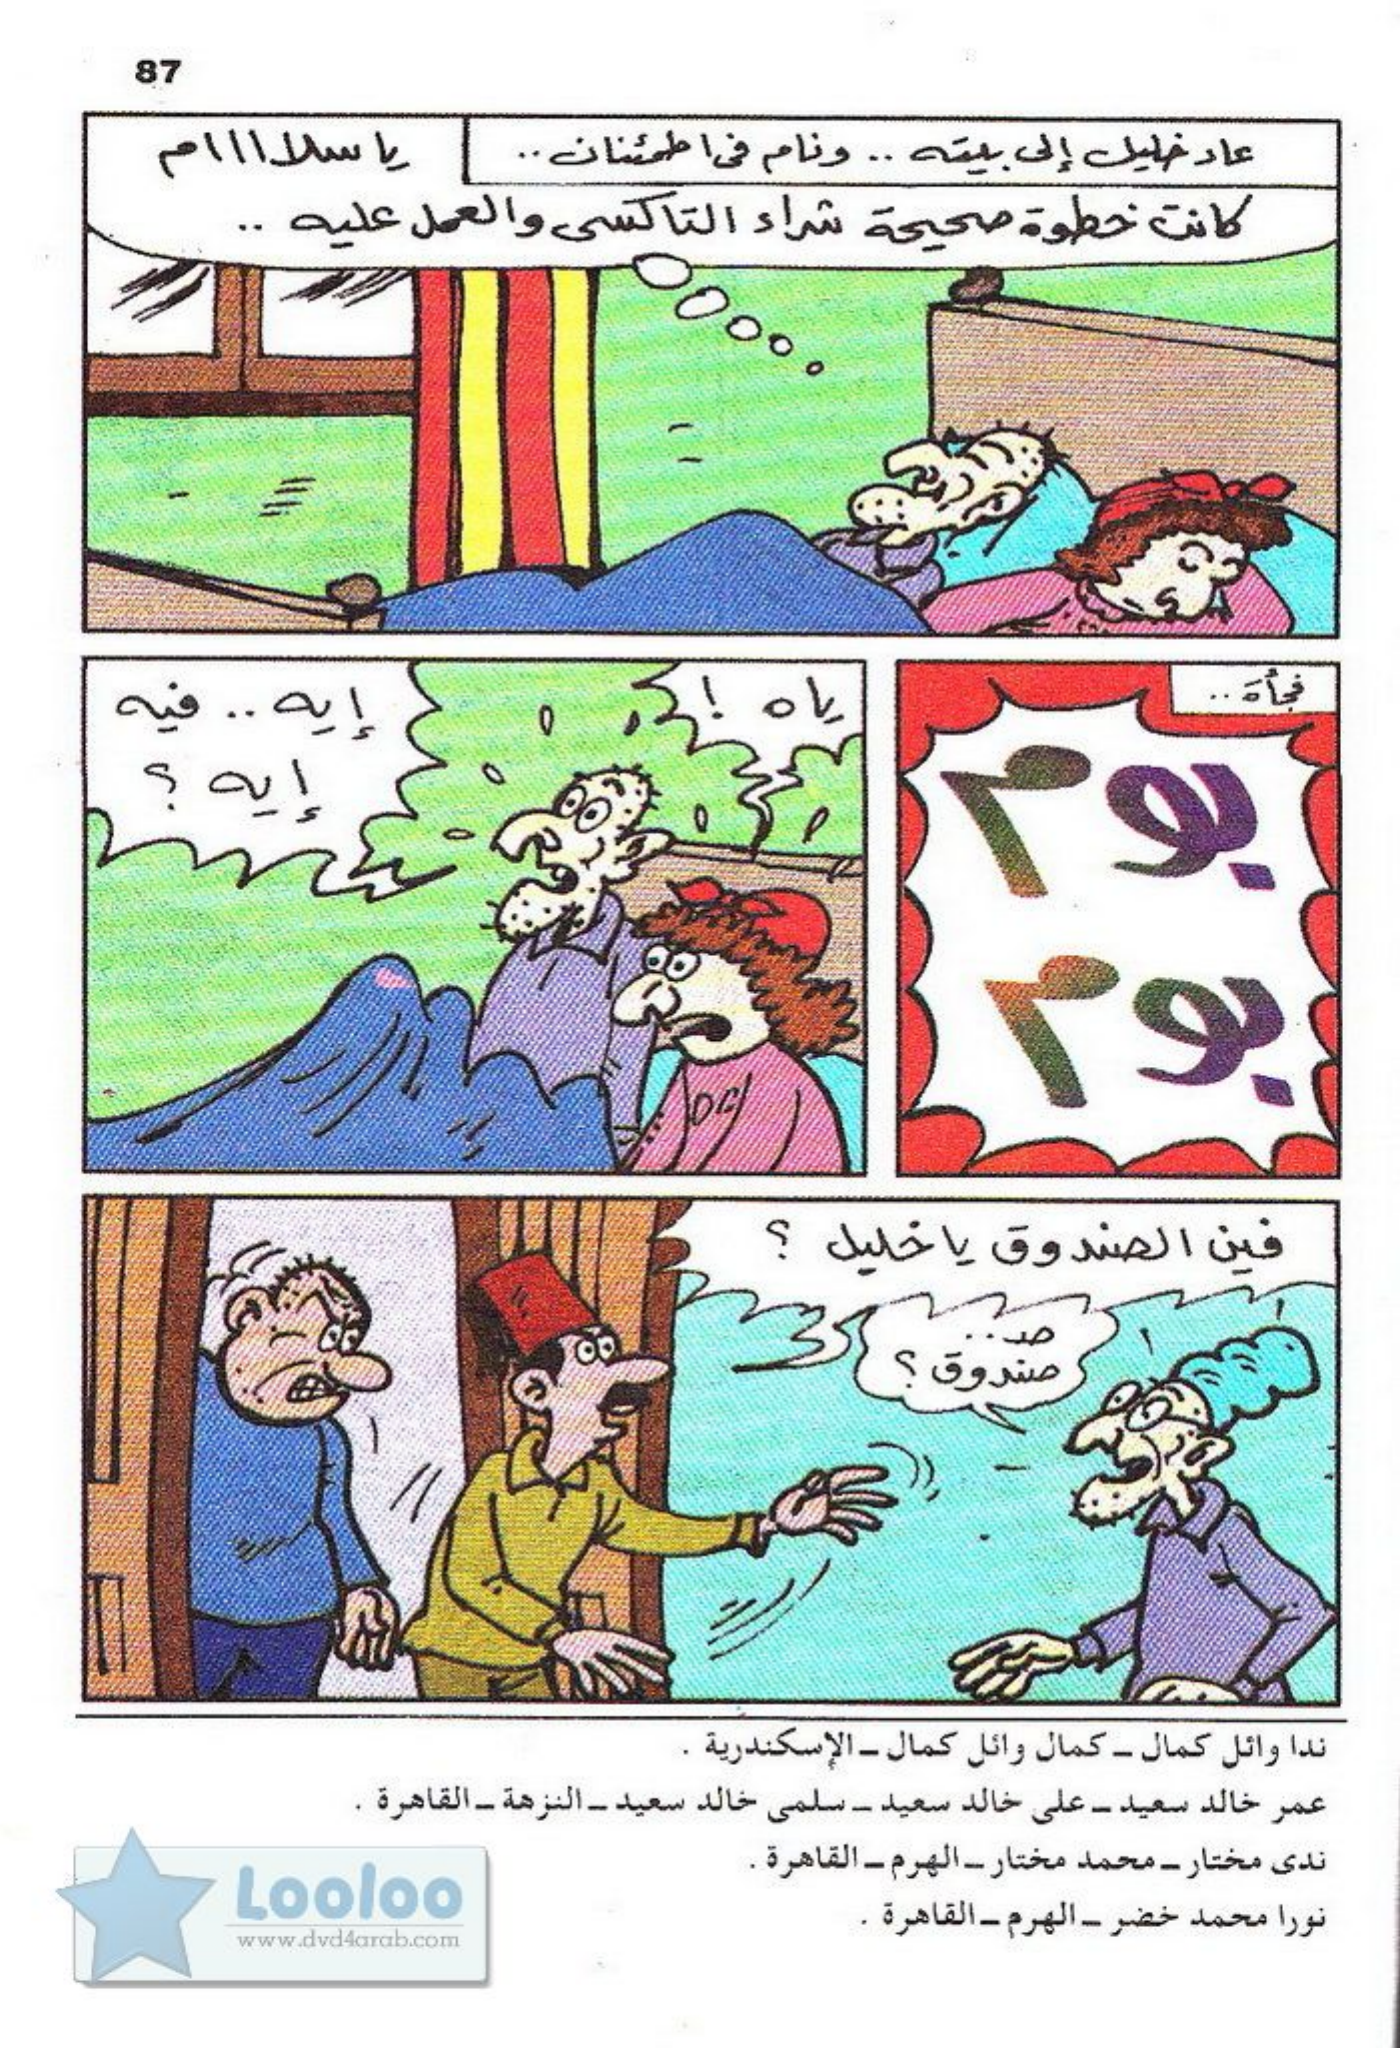 87
عاد خليل إلى بيته .. ونام فى اطمئنان ..
يا سلااااام
كانت خطوة صحيحة شراء التاكسى والعمل عليه ..
فجأة ..
بوم
بوم
ياه !
إيه .. فيه
إيه ؟
فين الصندوق يا خليل ؟
صد ..
صندوق ؟
ندا وائل كمال ــ كمال وائل كمال ــ الإسكندرية .
عمر خالد سعيد ــ على خالد سعيد ــ سلمى خالد سعيد ــ النزهة ــ القاهرة .
ندى مختار ــ محمد مختار ــ الهرم ــ القاهرة .
نورا محمد خضر ــ الهرم ــ القاهرة .
Looloo
www.dvd4arab.com